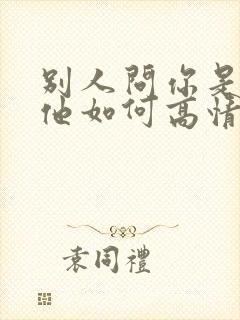 别人問你是
他如何高情
袁同禮